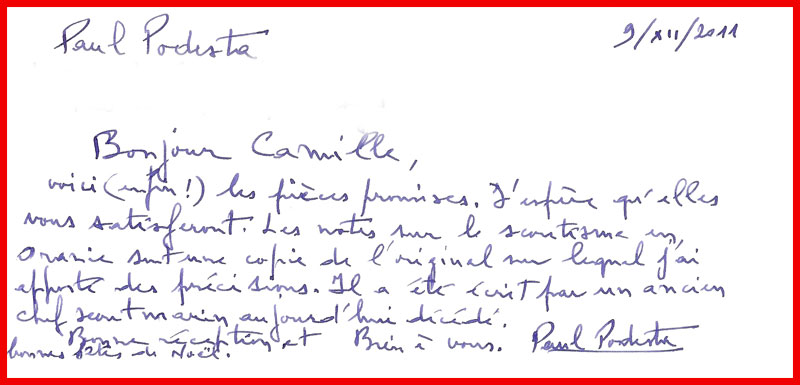 Paul Podesta 9/XII/2011
Bonjour Camille,
voici (enfin!) les pièces promises. J'espère qu'elles
vous satisferont. Les notes sur le scoutisme en
Oranie sont une copie de l'original sur lequel j'ai
apporté des précisions. Il a été écrit par un ancien
chef scout marin aujourd'hui décédé.
Bonne réception et Bien à vous. Paul Podesta
bonnes fêtes de Noël.